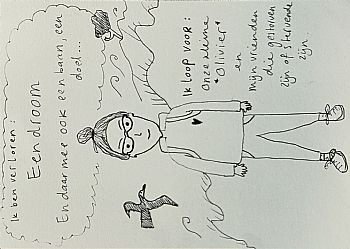 Ik ben verloren:
Een droom
En daarmee ook een baan, een
doel...
Ik loop voor:
onze kleine
"Olivier"
en
mijn vrienden
die gestorven
zijn of stervende
zijn.